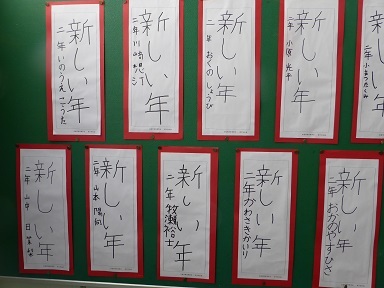 新しい年
二年 いのうえ こうた
新しい年
二年 川崎
新しい年
年 おくの しょうび
新しい年
二年 小原 光平
新しい年
二年
新しい年
二年 山中 日
新しい年
二年 山本 陽向
新しい年
二年 牧瀬裕士
新しい年
二年 かわさき かいり
新しい年
二年 おかの やすひさ